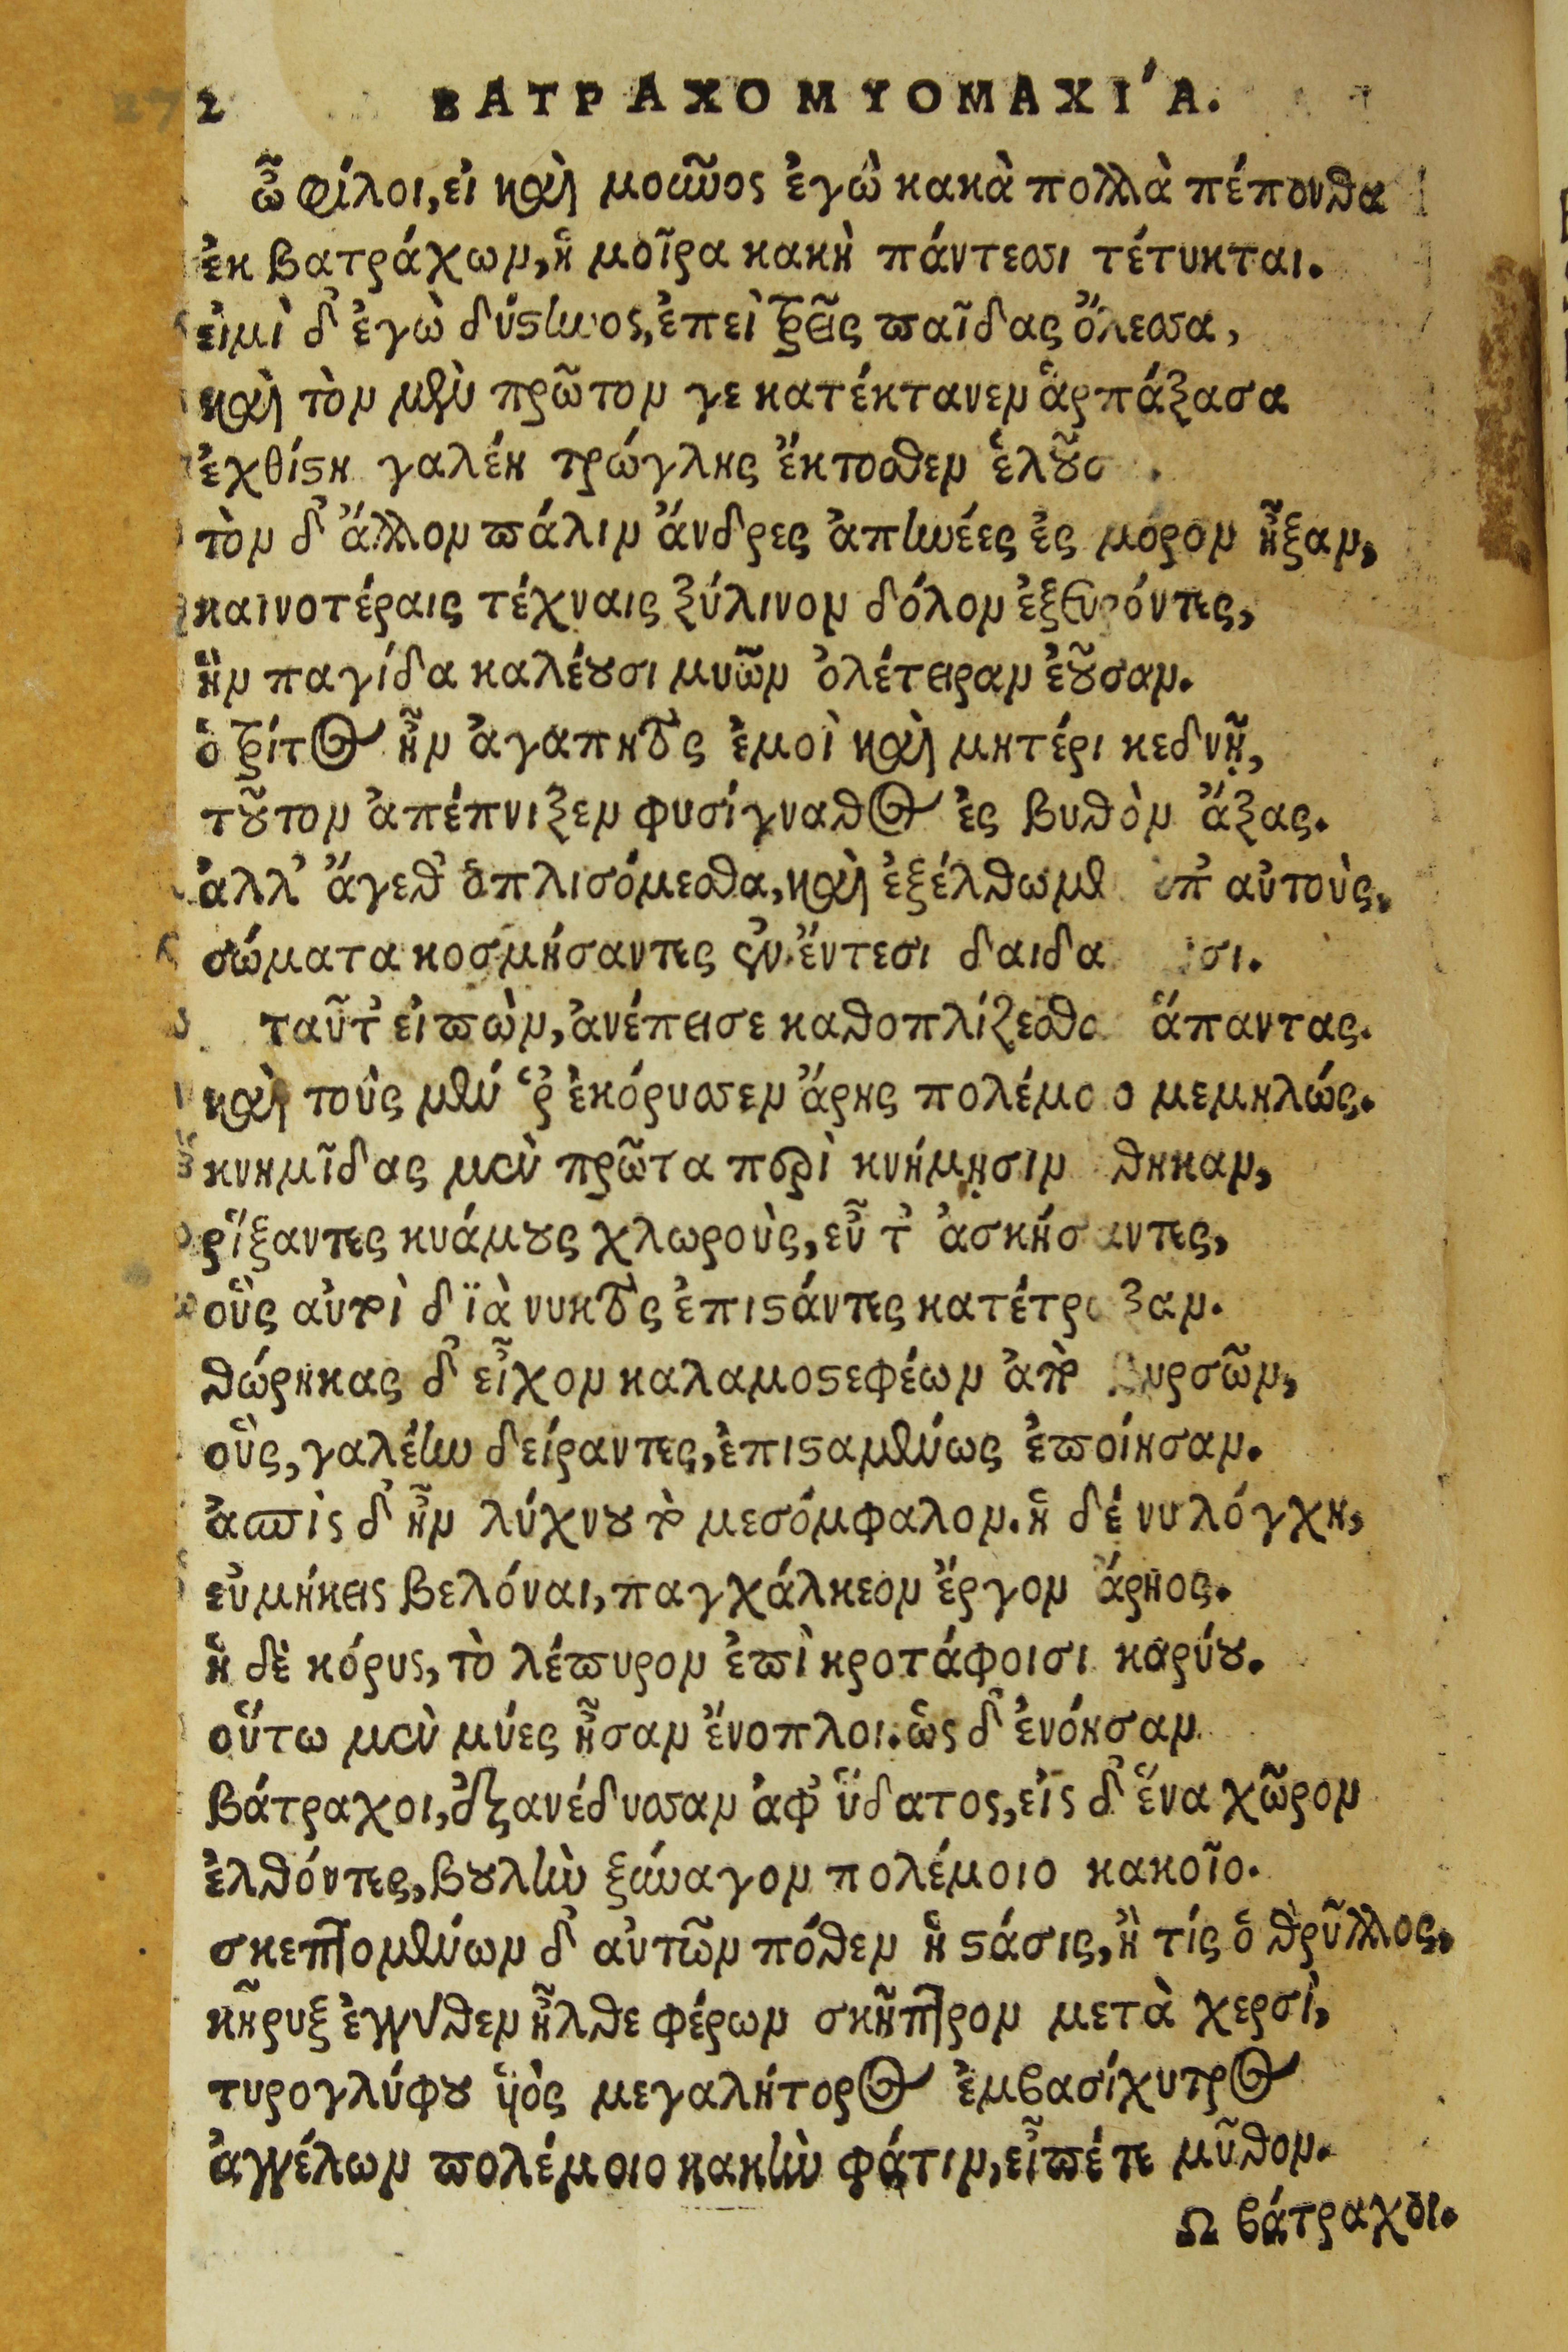 2 ΒΑΤΡΑΧΟΜΥΟΜΑΧΙ´Α.
ὦ φίλοι, εἰ καὶ μοῦνος ἐγὼ κακὰ πολλὰ πέπονθα
ἐκ βατράχων, ἡ μοῖρα κακὴ πάντεσσι τέτυκται.
εἰμὶ δ᾽ ἐγὼ δύστηνος, ἐπεὶ τρεῖς παῖδας ὄλεσσα,
καὶ τὸν μὲν πρῶτον γε κατέκτανεν ἁρπάξασα
ἐχθίστη γαλέη τρώγλης ἔκτοσθεν
τὸν δ᾽ ἄλλον πάλιν ἄνδρες ἀπηνέες ἐς μόρον ἦξαν,
καινοτέραις τέχναις ξύλινον δόλον ἐξευρόντες,
ἣν παγίδα καλέουσι μυῶν ὀλέτειραν ἐοῦσαν.
ὁ τρίτος ἦν ἀγαπητὸς ἐμοὶ καὶ μητέρι κεδνῇ,
τοῦτον ἀπέπνιξεν φυσίγναθος ἐς βυθὸν ἄξας.
ἀλλ᾽ ἄγεθ᾽ ὁπλισόμεσθα, καὶ ἐξέλθωμεν ἐπ᾽ αὐτοὺς,
σώματα κοσμήσαντες ἐν ἔντεσι
ταῦτ᾽ εἰπὼν, ἀνέπεισε καθοπλίζεσθαι ἅπαντας.
καὶ τοὺς μέν ῥ᾽ ἐκόρυσσεν ἄρης πολέμοιο μεμηλώς.
κνημῖδας μὲν πρῶτα περὶ κνήμῃσιν θηκαν,
ῥίξαντες κυάμους χλωροὺς, εὖ τ᾽ ἀσκήσαντες,
οὓς αὐτοὶ διὰ νυκτὸς ἐπιστάντες κατέτρωξαν.
θώρηκας δ᾽ εἶχον καλαμοστεφέων ἀπὸ βυρσῶν,
οὓς, γαλέην δείραντες, ἐπισταμένως ἐποίησαν.
ἀσπὶς δ᾽ ἦν λύχνου τὸ μεσόμφαλον. ἡ δέ νυ λόγχη,
εὐμήκεις βελόναι, παγχάλκεον ἔργον ἄρηος.
ἡ δὲ κόρυς, τὸ λέπυρον ἐπὶ κροτάφοισι καρύου.
οὕτω μὲν μύες ἦσαν ἔνοπλοι. ὡς δ᾽ ἐνόησαν
βάτραχοι, ἐξανέδυσσαν ἀφ᾽ ὕδατος, εἰς δ᾽ ἕνα χῶρον
ἐλθόντες, βουλὴν ξύναγον πολέμοιο κακοῖο.
σκεπτομένων δ᾽ αὐτῶν πόθεν ἡ στάσις, ἢ τίς ὁ θρῦλλος,
κῆρυξ ἐγγύθεν ἦλθε φέρων σκῆπτρον μετὰ χερσὶ,
τυρογλύφου ὑιὸς μεγαλήτορος ἐμβασίχυτρος
ἀγγέλων πολέμοιο κακὴν φάτιν, εἶπέ τε μῦθον.
Ω βάτραχοι.